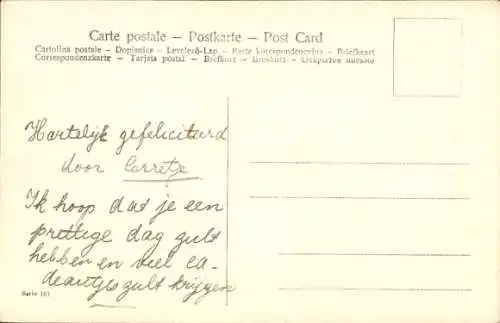 Carte postale – Postkarte – Post Card
Cartolina postale – Dopisnice – Levelező-Lap – Karta korespondencyjna – Briefkaart
Correspondenzkarte – Tarjeta postal – Brefkort – Brevkort – Открытое письмо
Hartelijk gefeliciteerd
door Corretje
Ik hoop dat je een
prettige dag zult
hebben en veel ca-
deautjes zult krijgen
Serie 161